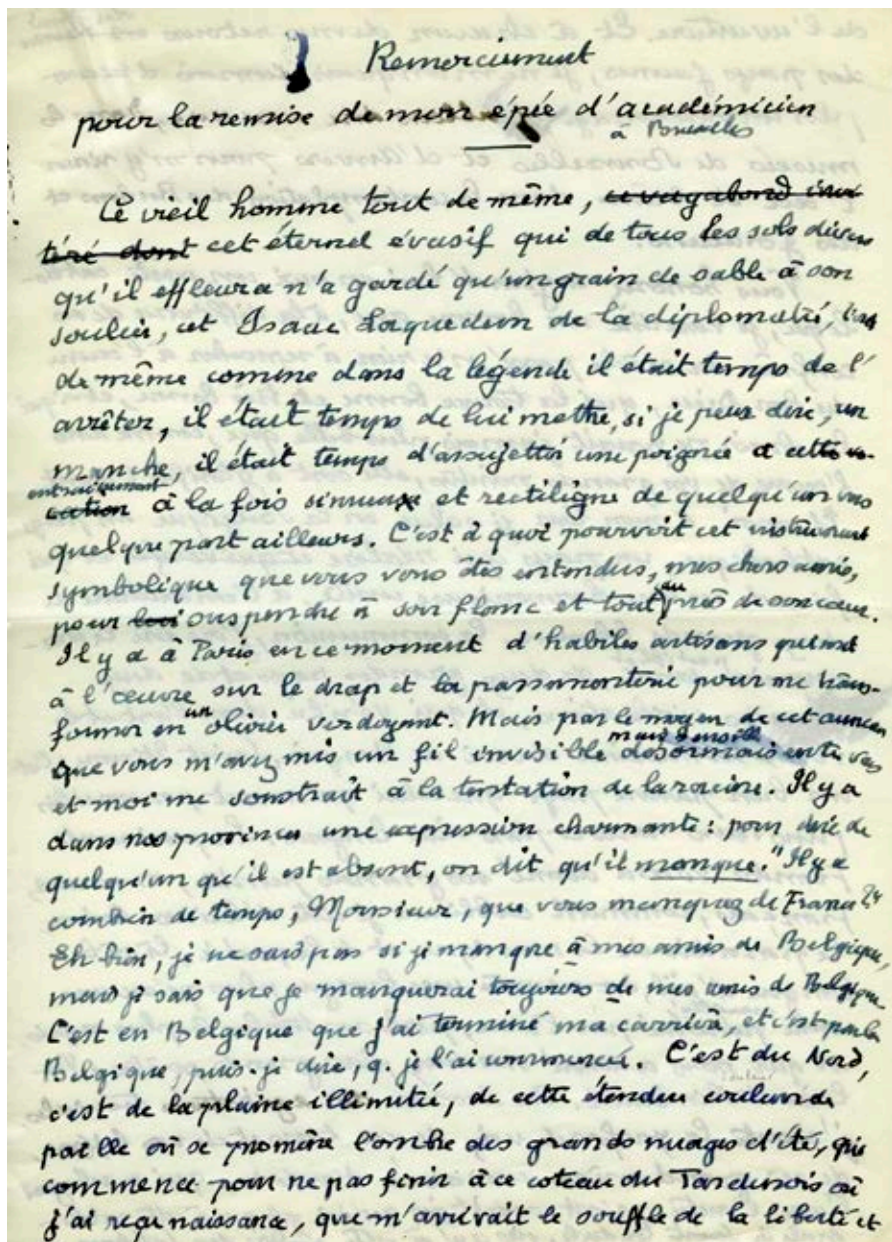 Remerciement
pour la remise de mon épée d'académicien
à Bruxelles
Ce vieil homme tout de même, ce vagabond invé
téré dont cet éternel évasif qui de tous les sols divers
qu'il effleura n'a gardé qu'un grain de sable à son
soulier, cet Isaac Laquedem de la diplomatie, tout
de même comme dans la légende il était temps de l'
arrêter, il était temps de lui mettre, si je peux dire, un
manche, il était temps d'assujettir une poignée à cette vo-
entraînement
cation à la fois sinueux et rectiligne de quelqu'un vers
quelque part ailleurs. C'est à quoi pourvoit cet instrument
symbolique que vous vous êtes entendus, mes chers amis,
pour lui suspendre à son flanc et tout au près de son cœur.
Il y a à Paris en ce moment d'habiles artisans qui sont
à l'œuvre sur le drap et la passementerie pour me trans-
former en un olivier verdoyant. Mais par le moyen de cet
que vous m'avez mis un fil invisible mais désormais entre vous
et moi me soustrait à la tentation de la racine. Il y a
dans nos provinces une expression charmante : pour dire de
quelqu'un qu'il est absent, on dit qu'il manque. "Il y a
combien de temps, Monsieur, que vous manquez de France ?"
Eh bien, je ne sais pas si je manque à mes amis de Belgique,
mais je sais que je manquerai toujours de mes amis de Belgique.
C'est en Belgique que j'ai terminé ma carrière, et c'est par la
Belgique, puis-je dire, q. je l'ai commencée. C'est du Nord,
c'est de la plaine illimitée, de cette étendue couleur de
paille où se promène l'ombre des grands nuages d'été, qui
commence pour ne pas finir à ce coteau du Tardenois où
j'ai reçu naissance, que m'arrivait le souffle de la liberté et